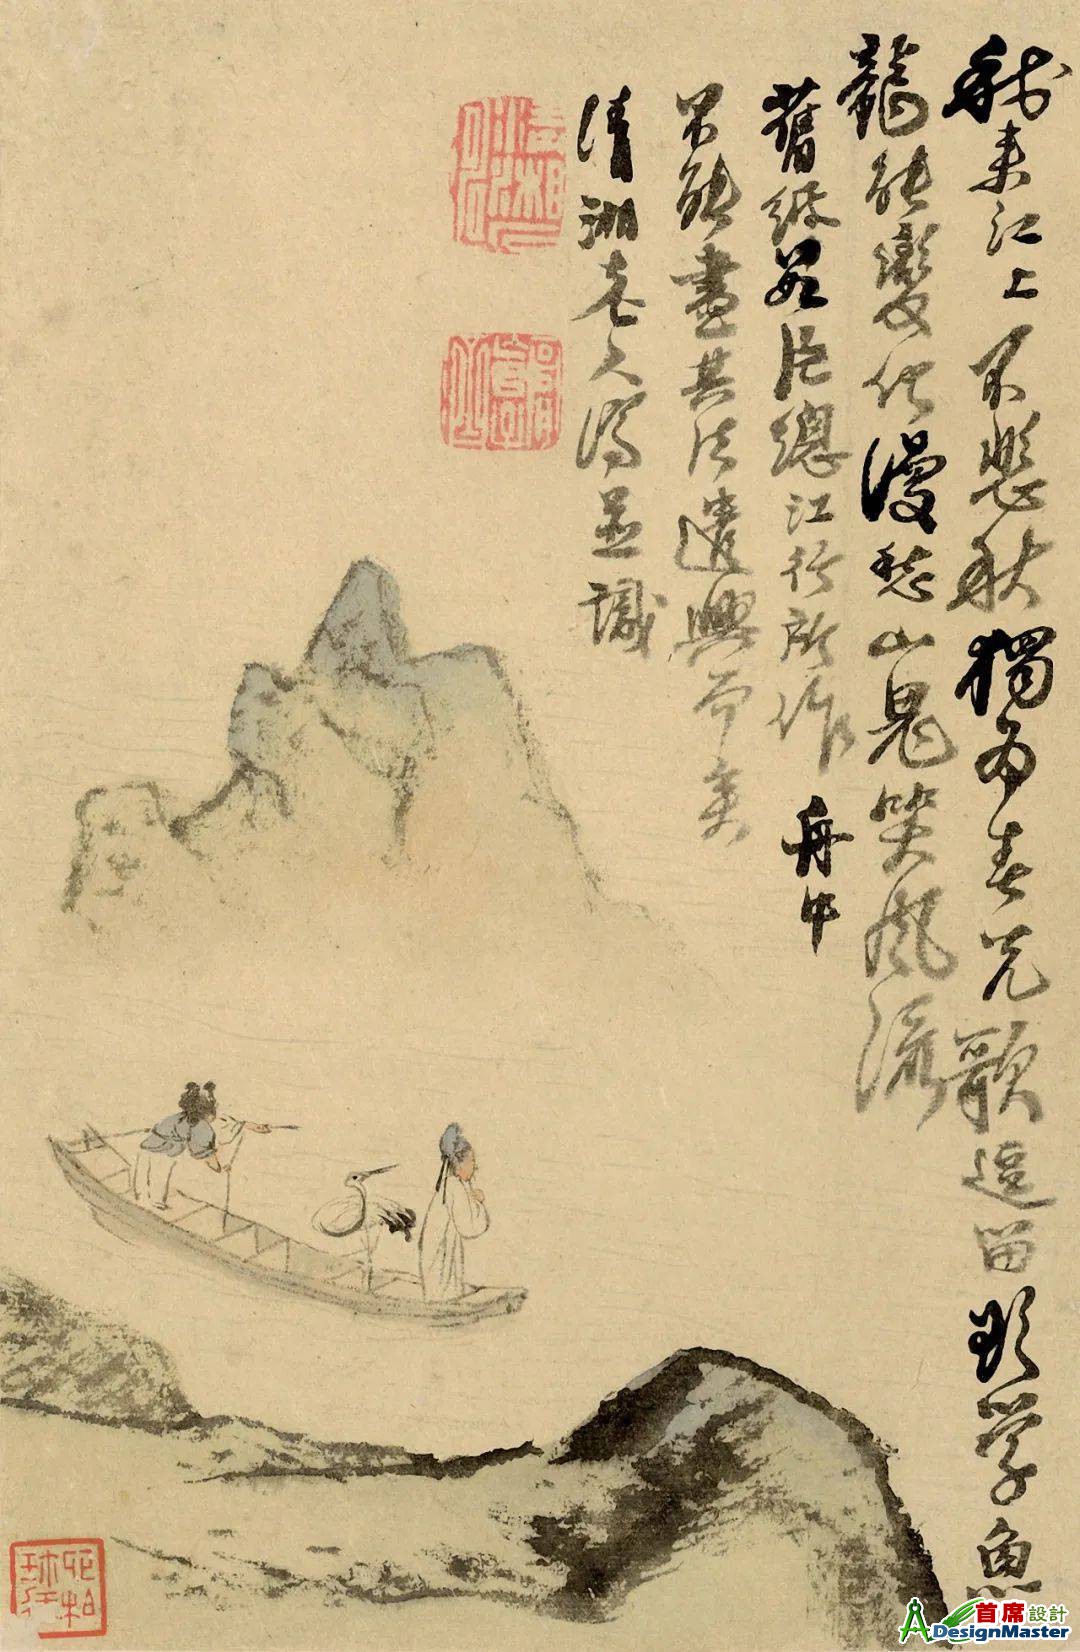 我來江上不悲秋獨為春光歌逗留欲學魚
龍能變化漫愁山鬼笑風流
舊紙總江行所作舟中
不能盡其法遣興而矣
清湘老人濟並識
首席設計
DesignMaster